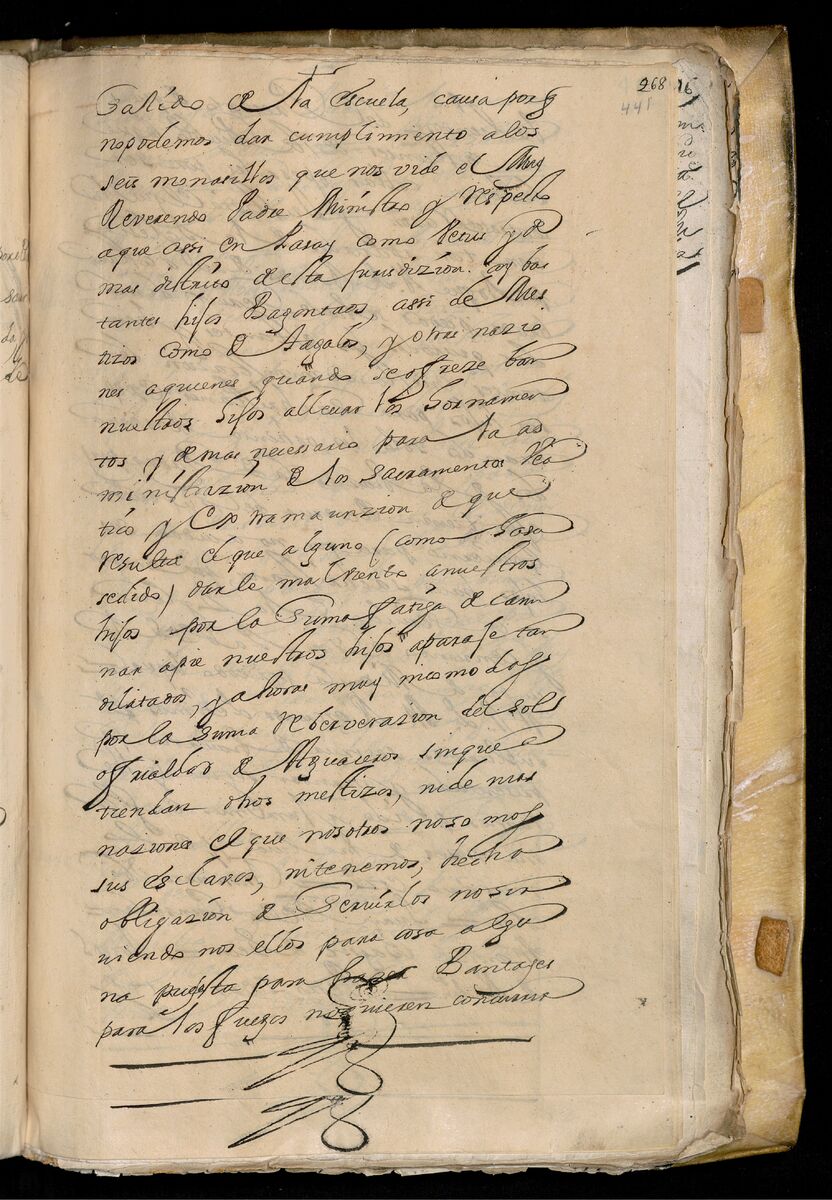 268
441
Salido de la escuela, causa porq
nopodemos dar cumplimiento alos
seis monasillos que nos pide el Muy
Reverendo Padre Ministro y respecto
aque assi en Pasay como y
mas distrito de esta Jurisdizion. ay bas
tantes hijos Bagontaos, assi de Mes
tizos como de Tagalos, y otras nazio
nes aquienes quando se ofreze ban
nuestros hijos allevar los hornamen
tos y demas necessario para la ad
ministrazion de los sacramentos Via
tico y Extremaunzion de que
resulta el que alguno (como ha sub
sedido) darle mal viento anuestros
hijos por la suma fatiga de cami
nar apie nuestros hijos aparaje tan
dilatados, y ahoras muy incomodas
por la suma reberverazion del sol
o frialdad de Aguaceros sinque a
tiendan dhos mestizos, nide mas
naziones el que nosotros no somos
sus esclavos, nitenemos, hecha
obligazion de servirlos no sir
viendo nos ellos para cosa algu
na puesta para Bantayes
para los fuegos no quieren concurrir